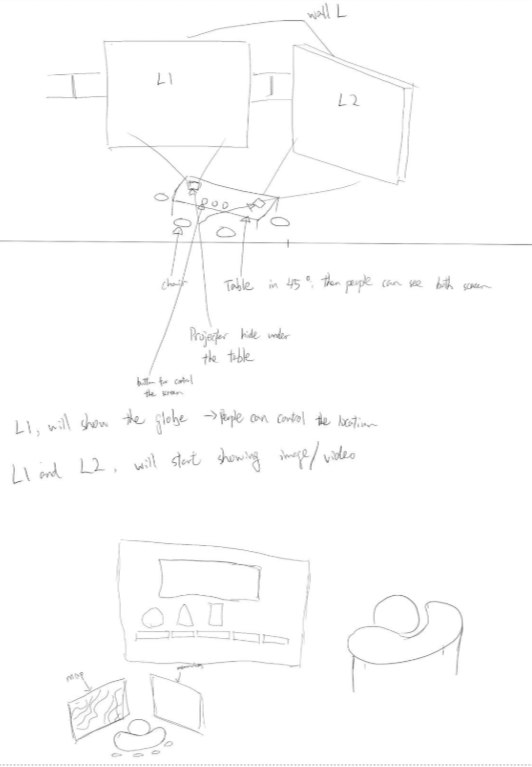 wall L
L1
L2
chair
Table in 45°. then people can see both screen
Projector hide under
the table
button for control
the screen
L1, will show the globe → People can control the location
L1 and L2, will start showing image/video
map